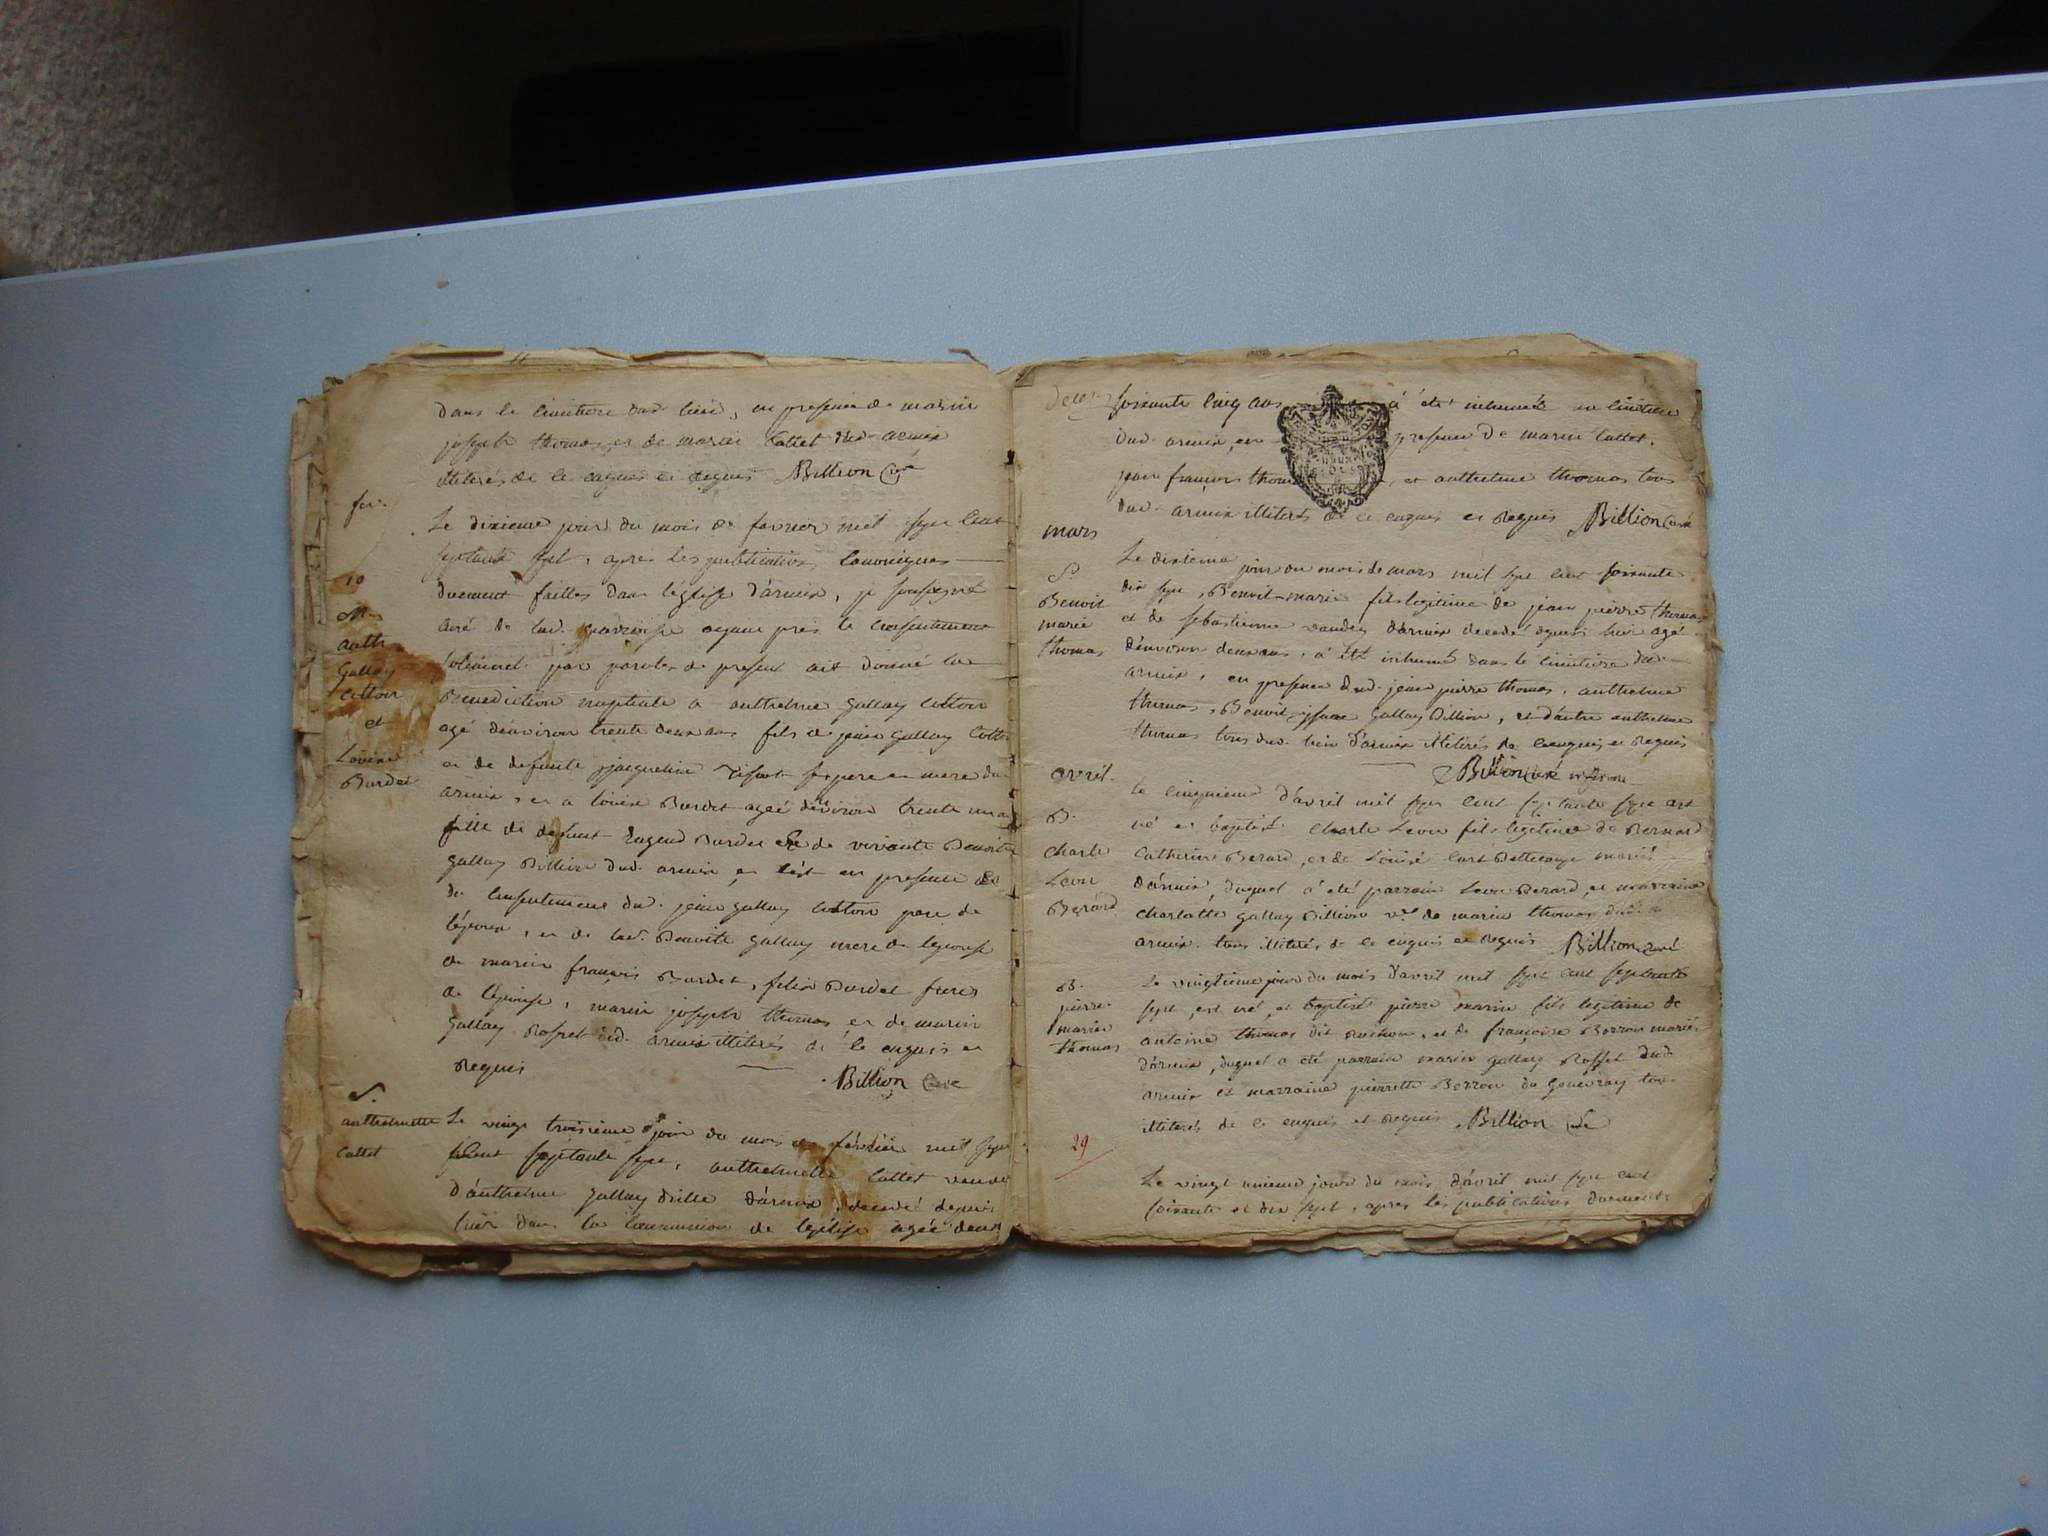 dans le cimitiere dud. lieu, en presence de marin
joseph thomas et de marin Cattet dud. armix
illiterés de ce enquis et requis Billion Curé
fev.
Le dixieme jour du mois de fevrier mil sept cent
septante sept, après les publications canoniques
10
duement faittes dans l'église d'armix, je soussigné
M.
anth.
Gallay
Cotton
et
Louise
Burdet
curé de lad. parroisse ayant pris le consentement
solennel par paroles de present ait donné la
Benediction nuptiale a anthelme Gallay Cotton
agé d'environ trente deux ans fils de jean Gallay Cotton
et de defunte jacqueline ses pere et mere dud.
armix, et a louise Burdet ageé d'environ trente un ans
fille de defunt Eugend Burdet et de vivante Benoite
gallay Billion dud. armix, en presence et
du consentement dud. jean gallay cotton pere de
l'époux, et de lad. Benoite gallay mere de l'épouse
de marin françois Burdet, felix Burdet freres
de l'épouse, marin joseph thomas et de marin
Gallay Rosset dud. armix illiterés de ce enquis et
requis Billion Curé
S.
anthelmette
Cattet
Le vingt troisieme jour du mois de février mil sept
cent septante sept, anthelmette Cattet veuve
d'anthelme Gallay d'armix, decedé depuis
hier dans la Communion de l'église ageé de
soixante cinq ans a été inhumée au cimitiere
dud. armix, en presence de marin Cattet,
jean françois thomas, et anthelme thomas tous
dud. armix illiterés de ce enquis et requis Billion Curé
mars
S.
Benoit
marie
thomas
Le dixieme jour du mois de mars mil sept cent soixante
dix sept, Benoit-marie fils legitime de jean pierre thomas
et de sebastienne d'armix decedé depuis hier agé
d'environ deux ans, a été inhumé dans le cimitiere dud.
armix, en presence dud. jean pierre thomas, anthelme
thomas, Benoit Gallay Billion, et d'autre anthelme
thomas tous dud. lieu d'armix illiterés de ce enquis et requis
Billion Curé
avril.
B.
charle
Leon
Berard
Le cinquieme d'avril mil sept cent septante sept est
né et baptisé Charle Leon fils legitime de Bernard
Catherin Berard, et de Louise mariés
d'armix, duquel a été parrain Leon Berard, et marraine
charlotte gallay Billion vve de marin thomas dud.
armix. tous illiterés de ce enquis et requis Billion curé
B.
pierre
marin
thomas
Le vingtieme jour du mois d'avril mil sept cent septante
sept, est né, et baptisé pierre marin fils legitime de
antoine thomas dit, et de françoise Berron mariés
d'armix, duquel a été parrain marin gallay Rosset dud.
armix et marraine pierrette Berron du Genevray tous
illiterés de ce enquis et requis Billion Curé
29
Le vingt unieme jour du mois d'avril mil sept cent
soixante et dix sept, apres les publications duement